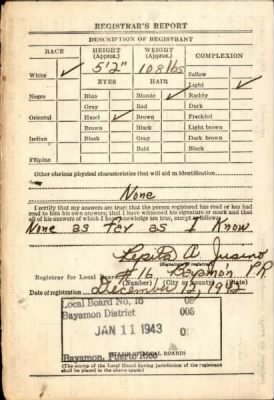 REGISTRAR'S REPORT
DESCRIPTION OF REGISTRANT
RACE
HEIGHT (Approx.)
WEIGHT (Approx.)
COMPLEXION
5'2"
108 lbs
White ✓
EYES
HAIR
Sallow
Light ✓
Negro
Blue
Blonde ✓
Ruddy
Gray
Red
Dark
Oriental
Hazel ✓
Brown
Freckled
Brown
Black
Light brown
Indian
Black
Gray
Dark brown
Bald
Black
Filipino
Other obvious physical characteristics that will aid in identification
None
I certify that my answers are true; that the person registered has read or has had
read to him his own answers; that I have witnessed his signature or mark and that
all of his answers of which I have knowledge are true, except as follows:
None as far as I Know.
Pepita A. Jusino
(Signature of registrar)
Registrar for Local Board #16 Bayamón P.R
(Number) (City or county) (State)
Date of registration December 12, 1942
Local Board No. 16
Bayamon District 005
JAN 11 1943
Bayamon, Puerto Rico
(The stamp of the Local Board having jurisdiction of the registrant
shall be placed in the above space.)